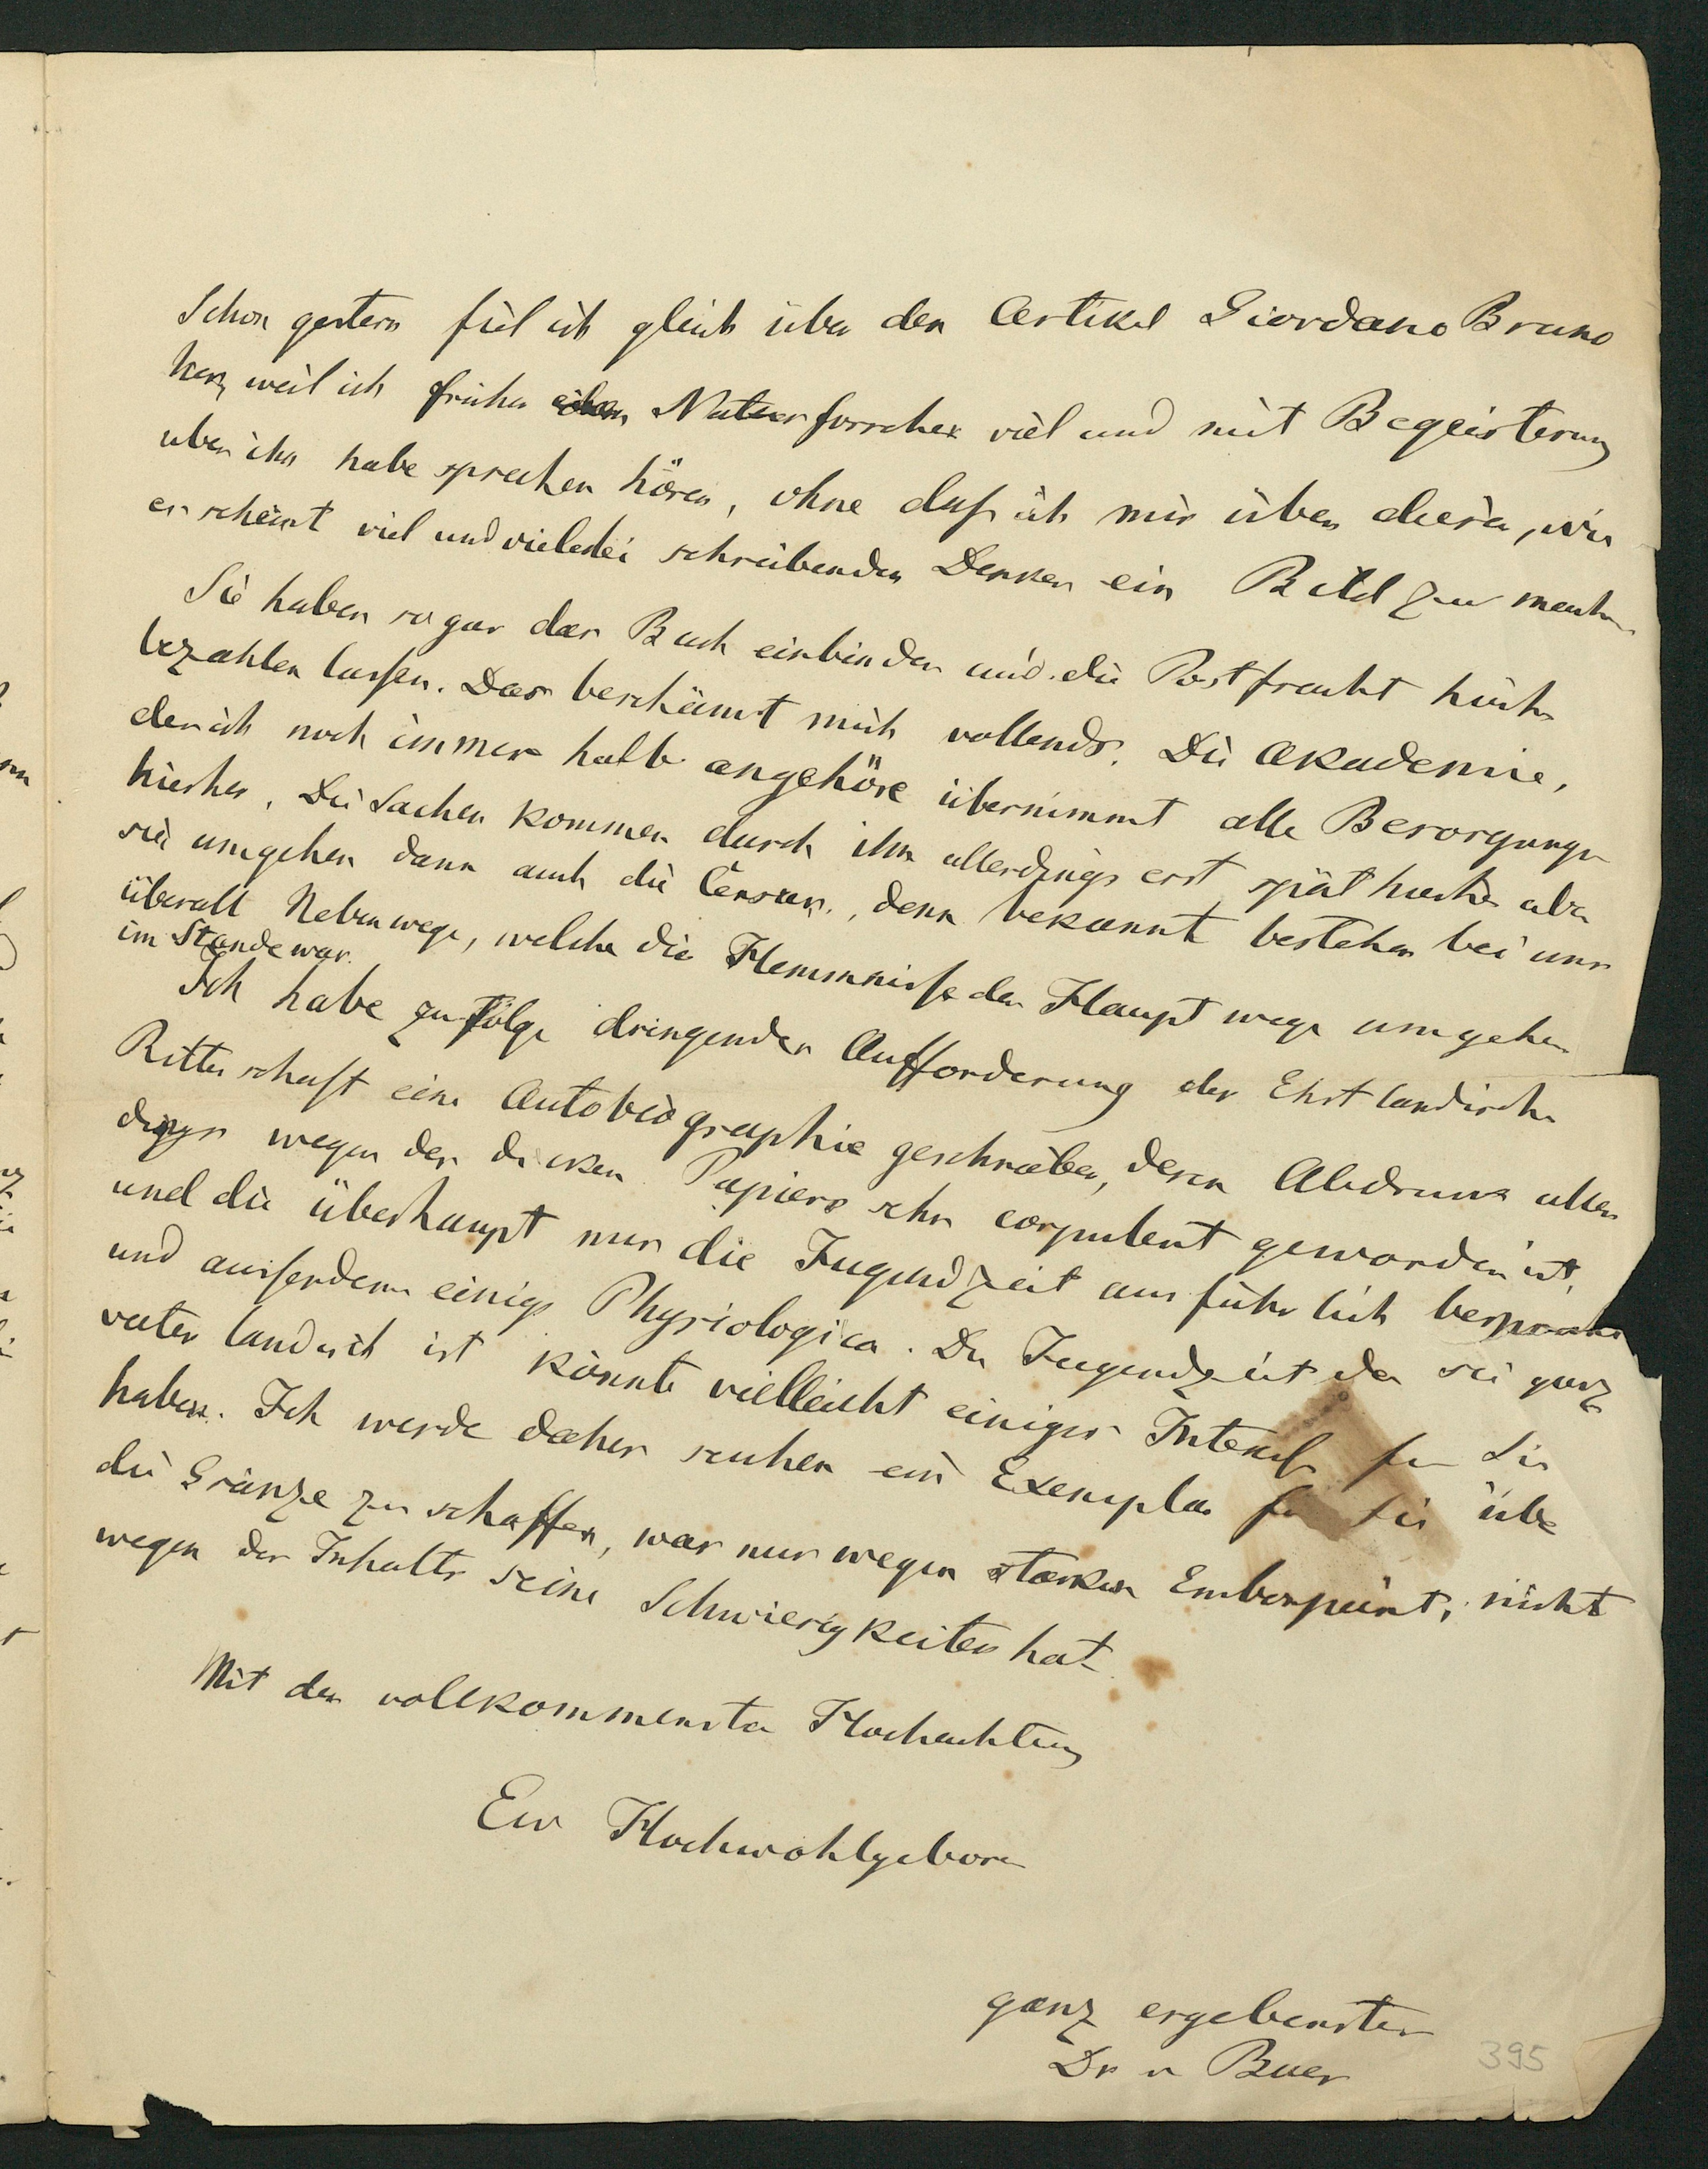 Schon gestern fiel ich gleich über den Artikel Giordano Bruno
her, weil ich früher Naturforscher viel und mit Begeisterung
über ihn habe sprechen hören, ohne daß ich mir über diesen, wie
es scheint viel und vielerlei schreibenden Denker ein Bild zu machen
Sie haben sogar das Buch einbinden und die Postfracht hieher
bezahlen lassen. Das beschämt mich vollends. Die Akademie,
der ich noch immer halb angehöre übernimmt alle Besorgungen
hierher. Die Sachen kommen durch ihn allerdings erst spät hierher aber
sie umgehen dann auch die Censur, denn bekannt bestehen bei uns
überall Nebenwege, welche die Hemmnisse der Hauptwege umgehen
im Stande war.
Ich habe zufolge dringender Aufforderung der Ehstländischen
Ritterschaft eine Autobiographie geschrieben, deren Abdruck aller
dings wegen des dicken Papiers sehr corpulent geworden ist,
und die überhaupt nur die Jugendzeit ausführlich bespricht
und ausserdem einige Physiologica. Die Jugendzeit da sie ganz
vaterländisch ist könnte vielleicht einiges Interesse für Sie
haben. Ich werde daher suchen ein Exemplar für Sie über
die Gränze zu schaffen, was nur wegen starken Embonpoint, nicht
wegen des Inhalts seine Schwierigkeiten hat.
Mit der vollkommensten Hochachtung
Ew Hochwohlgeboren
ganz ergebenster
Dr v Baer
395